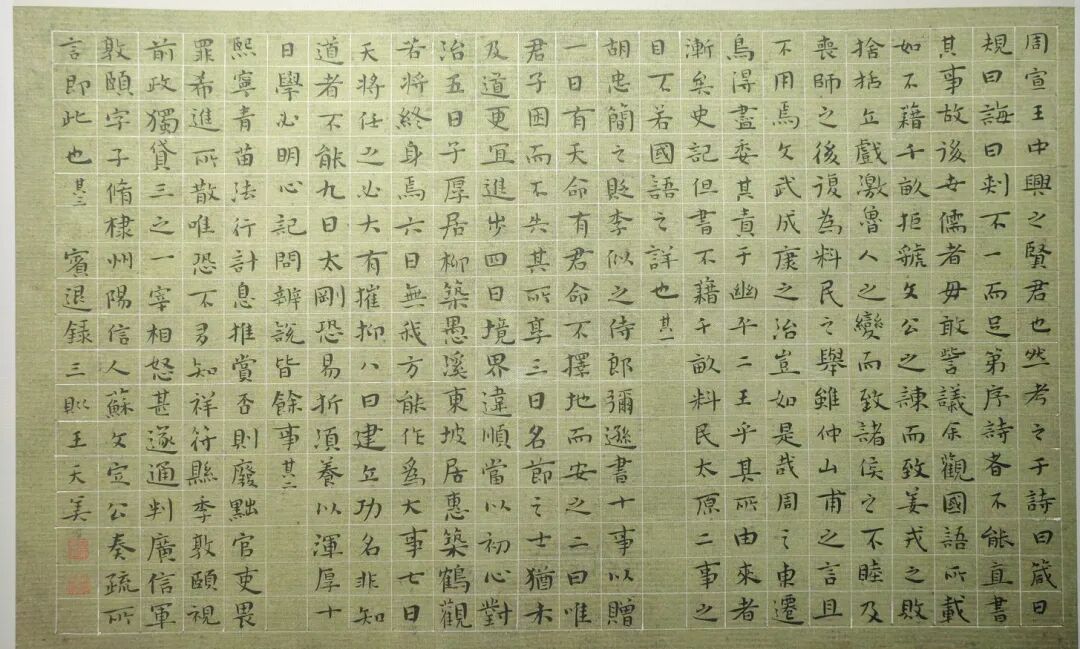 周宣王中興之賢君也然考之于詩曰箴曰
規曰誨曰刺不一而足第序詩者不能直書
其事故後世儒者毋敢訾議余觀國語所載
如不藉千畝拒虢文公之諫而致姜戎之敗
捨括立戲激魯人之變而致諸侯之不睦及
喪師之後復為料民之舉雖仲山甫之言且
不用焉文武成康之治豈如是哉周之東遷
烏得盡委其責于幽平二王乎其所由來者
漸矣史記但書不藉千畝料民太原二事之
目不若國語之詳也其一
胡忠簡之貶李似之侍郎彌遜書十事以贈
一曰有天命有君命不擇地而安之二曰唯
君子困而不失其所享三曰名節之士猶未
及道更宜進步四曰境界違順當以初心對
治五曰子厚居柳築愚溪東坡居惠築鶴觀
若將終身焉六曰無我方能作爲大事七曰
天將任之必大有摧抑八曰建立功名非知
道者不能九曰太剛恐易折須養以渾厚十
曰學必明心記問辨說皆餘事其二
熙寧青苗法行計息推賞否則廢黜官吏畏
罪希進所散唯恐不多知祥符縣季敦頤視
前政獨貸三之一宰相怒甚遂通判廣信軍
敦頤字子脩棣州陽信人蘇文定公奏疏所
言即此也其三 賓退錄三則王天美